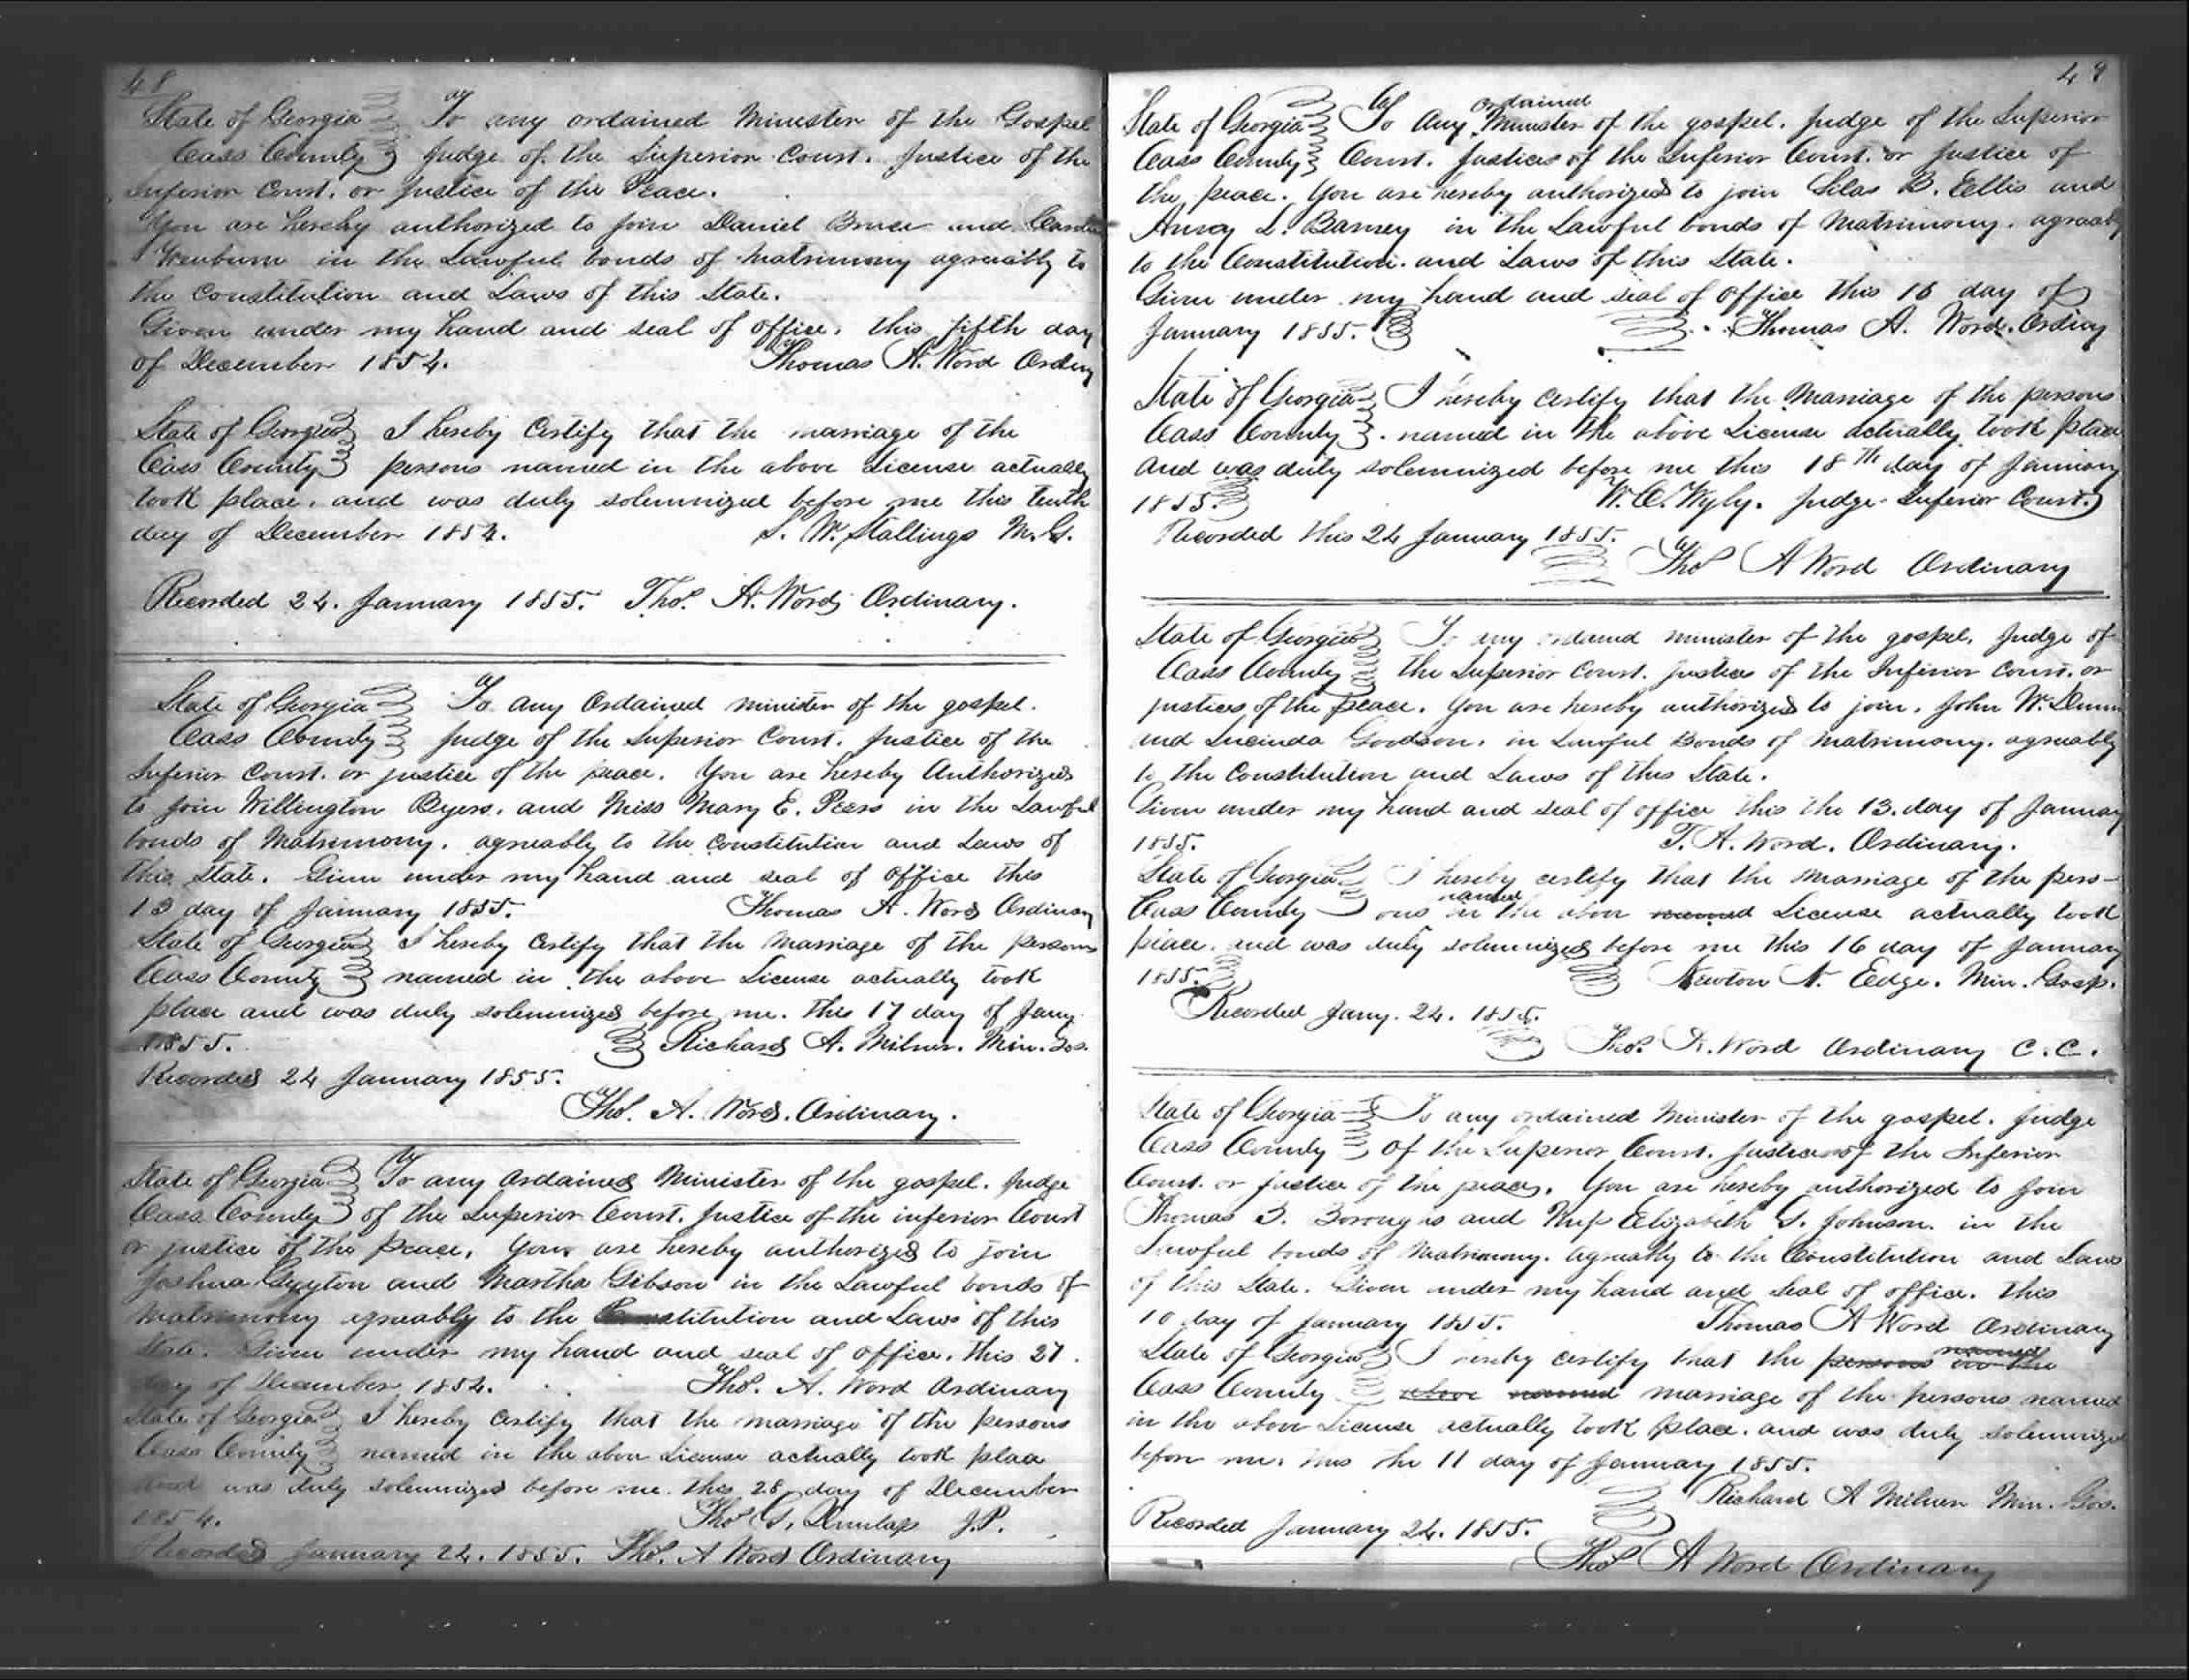 48
State of Georgia To any ordained Minister of the Gospel
Cass County Judge of the Superior Court. Justice of the
Inferior Court. or Justice of the Peace.
You are hereby authorized to join Daniel Bruce and
in the Lawful bonds of Matrimony agreeably to
the Constitution and Laws of this State.
Given under my hand and seal of office. this fifth day
of December 1854. Thomas A. Word Ordiny
State of Georgia I hereby Certify that the marriage of the
Cass County persons named in the above License actually
took place. and was duly solemnized before me this tenth
day of December 1854. S. W. Stallings M.G.
Recorded 24. January 1855. Thos. A. Word Ordinary.
State of Georgia To any Ordained minister of the gospel.
Cass County Judge of the Superior Court. Justice of the
Inferior Court. or justice of the peace. You are hereby Authorized
to join Willington Byers. and Miss Mary E. Peers in the Lawful
bonds of Matrimony. agreeably to the Constitution and Laws of
this State. Given under my hand and seal of office this
13 day of January 1855. Thomas A. Word Ordinary
State of Georgia I hereby Certify that the Marriage of the persons
Cass County named in the above License actually took
place and was duly solemnized before me. this 17 day of Jany
1855. Richard A. Milner. Min. Gos.
Recorded 24 January 1855.
Thos. A. Word. Ordinary.
State of Georgia To any Ordained Minister of the gospel. Judge
Cass County of the Superior Court. Justice of the inferior Court
or justice of the peace. You are hereby authorized to join
Joshua Guyton and Martha Gibson in the Lawful bonds of
Matrimony agreeably to the Constitution and Laws of this
State. Given under my hand and seal of office. this 27.
day of December 1854. Thos. A. Word Ordinary
State of Georgia I hereby Certify that the marriage of the persons
Cass County named in the above License actually took place
and was duly solemnized before me this 28 day of December
1854. Thos G. Dunlap J.P.
Recorded January 24. 1855. Thos. A Word Ordinary
49
State of Georgia To Any ordained Minister of the gospel. Judge of the Superior
Cass County Court. Justices of the Inferior Court. or Justice of
the peace. You are hereby authorized to join Silas B. Ellis and
L. Barney in the Lawful bonds of Matrimony. agreeably
to the Constitution. and Laws of this State.
Given under my hand and seal of office this 16 day of
January 1855. Thomas A. Word. Ordiny
State of Georgia I hereby Certify that the Marriage of the persons
Cass County named in the above License actually took place
and was duly solemnized before me this 18th day of January
1855. W. C. Wyly. Judge Inferior Court.
Recorded this 24 January 1855.
Thos A Word Ordinary
State of Georgia To any ordained minister of the gospel. Judge of
Cass County the Superior Court. justices of the Inferior Court. or
justices of the peace. You are hereby authorized to join. John W. Dunn
and Lucinda Goodson. in Lawful Bonds of Matrimony. agreeably
to the Constitution and Laws of this State.
Given under my hand and seal of office this the 13. day of January
1855. T. A. Word. Ordinary.
State of Georgia I hereby certify that the Marriage of the pers-
Cass County ons named in the above named License actually took
place. and was duly solemnized before me this 16 day of January
1855. Newton N. Edge. Min. Gosp.
Recorded Jany. 24. 1855.
Thos. A. Word Ordinary C.C.
State of Georgia To any ordained Minister of the gospel. Judge
Cass County of the Superior Court. Justices of the Inferior
Court. or justice of the peace. You are hereby authorized to join
Thomas B. Boroughs and Miss Elizabeth S. Johnson. in the
Lawful bonds of Matrimony. agreeably to the Constitution and Laws
of this State. Given under my hand and seal of office. this
10 day of January 1855. Thomas A Word Ordinary
State of Georgia I hereby certify that the persons named in the
Cass County above named marriage of the persons named
in the above License actually took place. and was duly solemnized
before me. this the 11 day of January 1855.
Richard A Milner Min. Gos.
Recorded January 24. 1855.
Thos A Word Ordinary